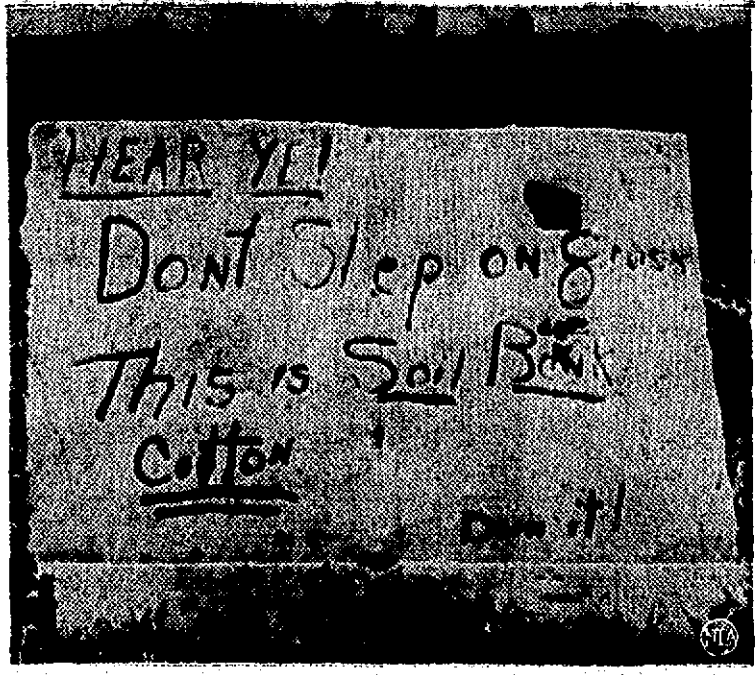 HEAR YE!
DONT Step ON grass
This is Soil Bank
Cotton
it!